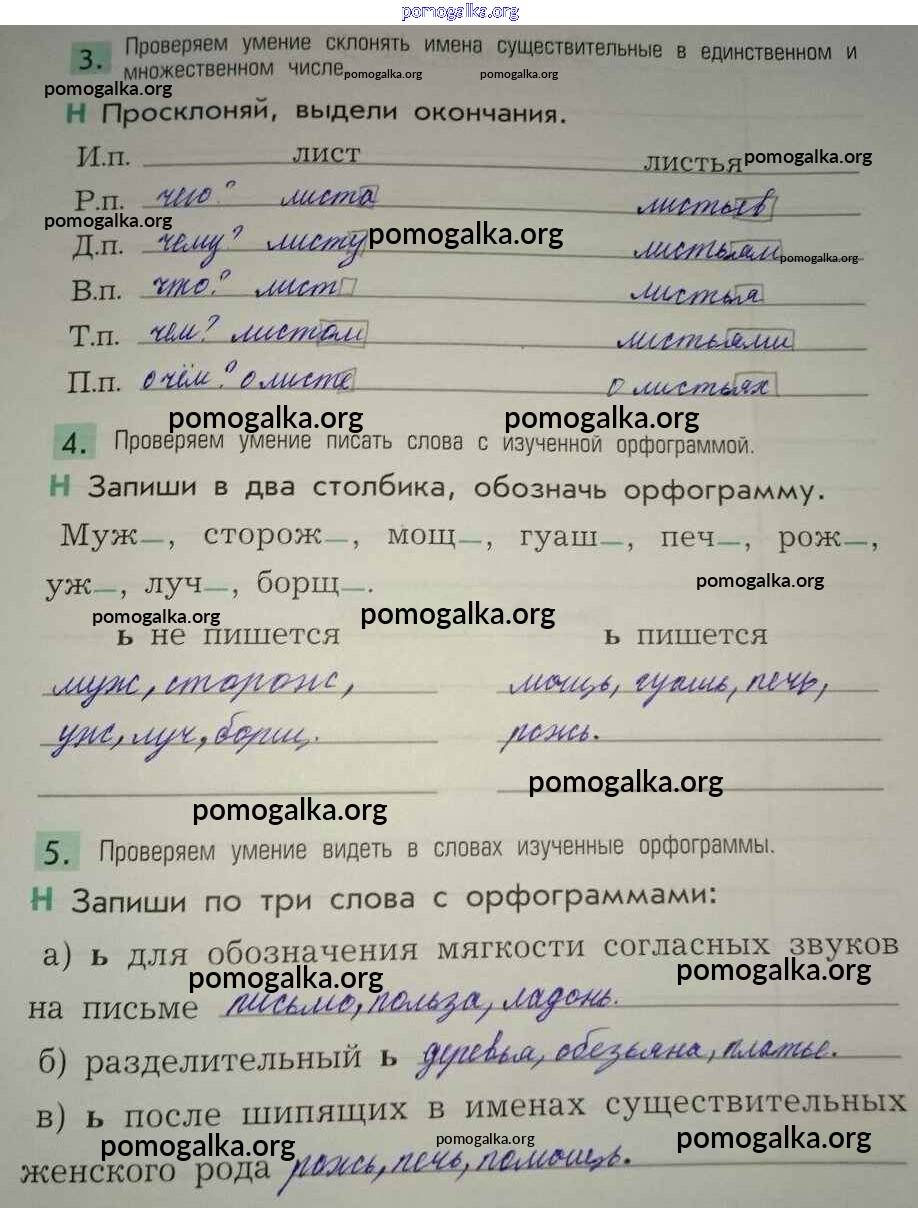 pomogalka.org
3. Проверяем умение склонять имена существительные в единственном и
множественном числе. pomogalka.org pomogalka.org
pomogalka.org
Н Просклоняй, выдели окончания.
И.п. лист листья pomogalka.org
Р.п. чего? листа листьев
pomogalka.org
Д.п. чему? листу pomogalka.org листьям pomogalka.org
В.п. что? лист листья
Т.п. чем? листом листьями
П.п. о чём? о листе о листьях
pomogalka.org pomogalka.org
4. Проверяем умение писать слова с изученной орфограммой.
Н Запиши в два столбика, обозначь орфограмму.
Муж_, сторож_, мощ_, гуаш_, печ_, рож_,
уж_, луч_, борщ_. pomogalka.org
pomogalka.org pomogalka.org
ь не пишется ь пишется
муж, сторож, мощь, гуашь, печь,
уж, луч, борщ. рожь.
pomogalka.org pomogalka.org
5. Проверяем умение видеть в словах изученные орфограммы.
Н Запиши по три слова с орфограммами:
а) ь для обозначения мягкости согласных звуков
pomogalka.org pomogalka.org
на письме письмо, польза, ладонь.
б) разделительный ь деревья, обезьяна, платье.
в) ь после шипящих в именах существительных
pomogalka.org pomogalka.org pomogalka.org
женского рода рожь, печь, помощь.